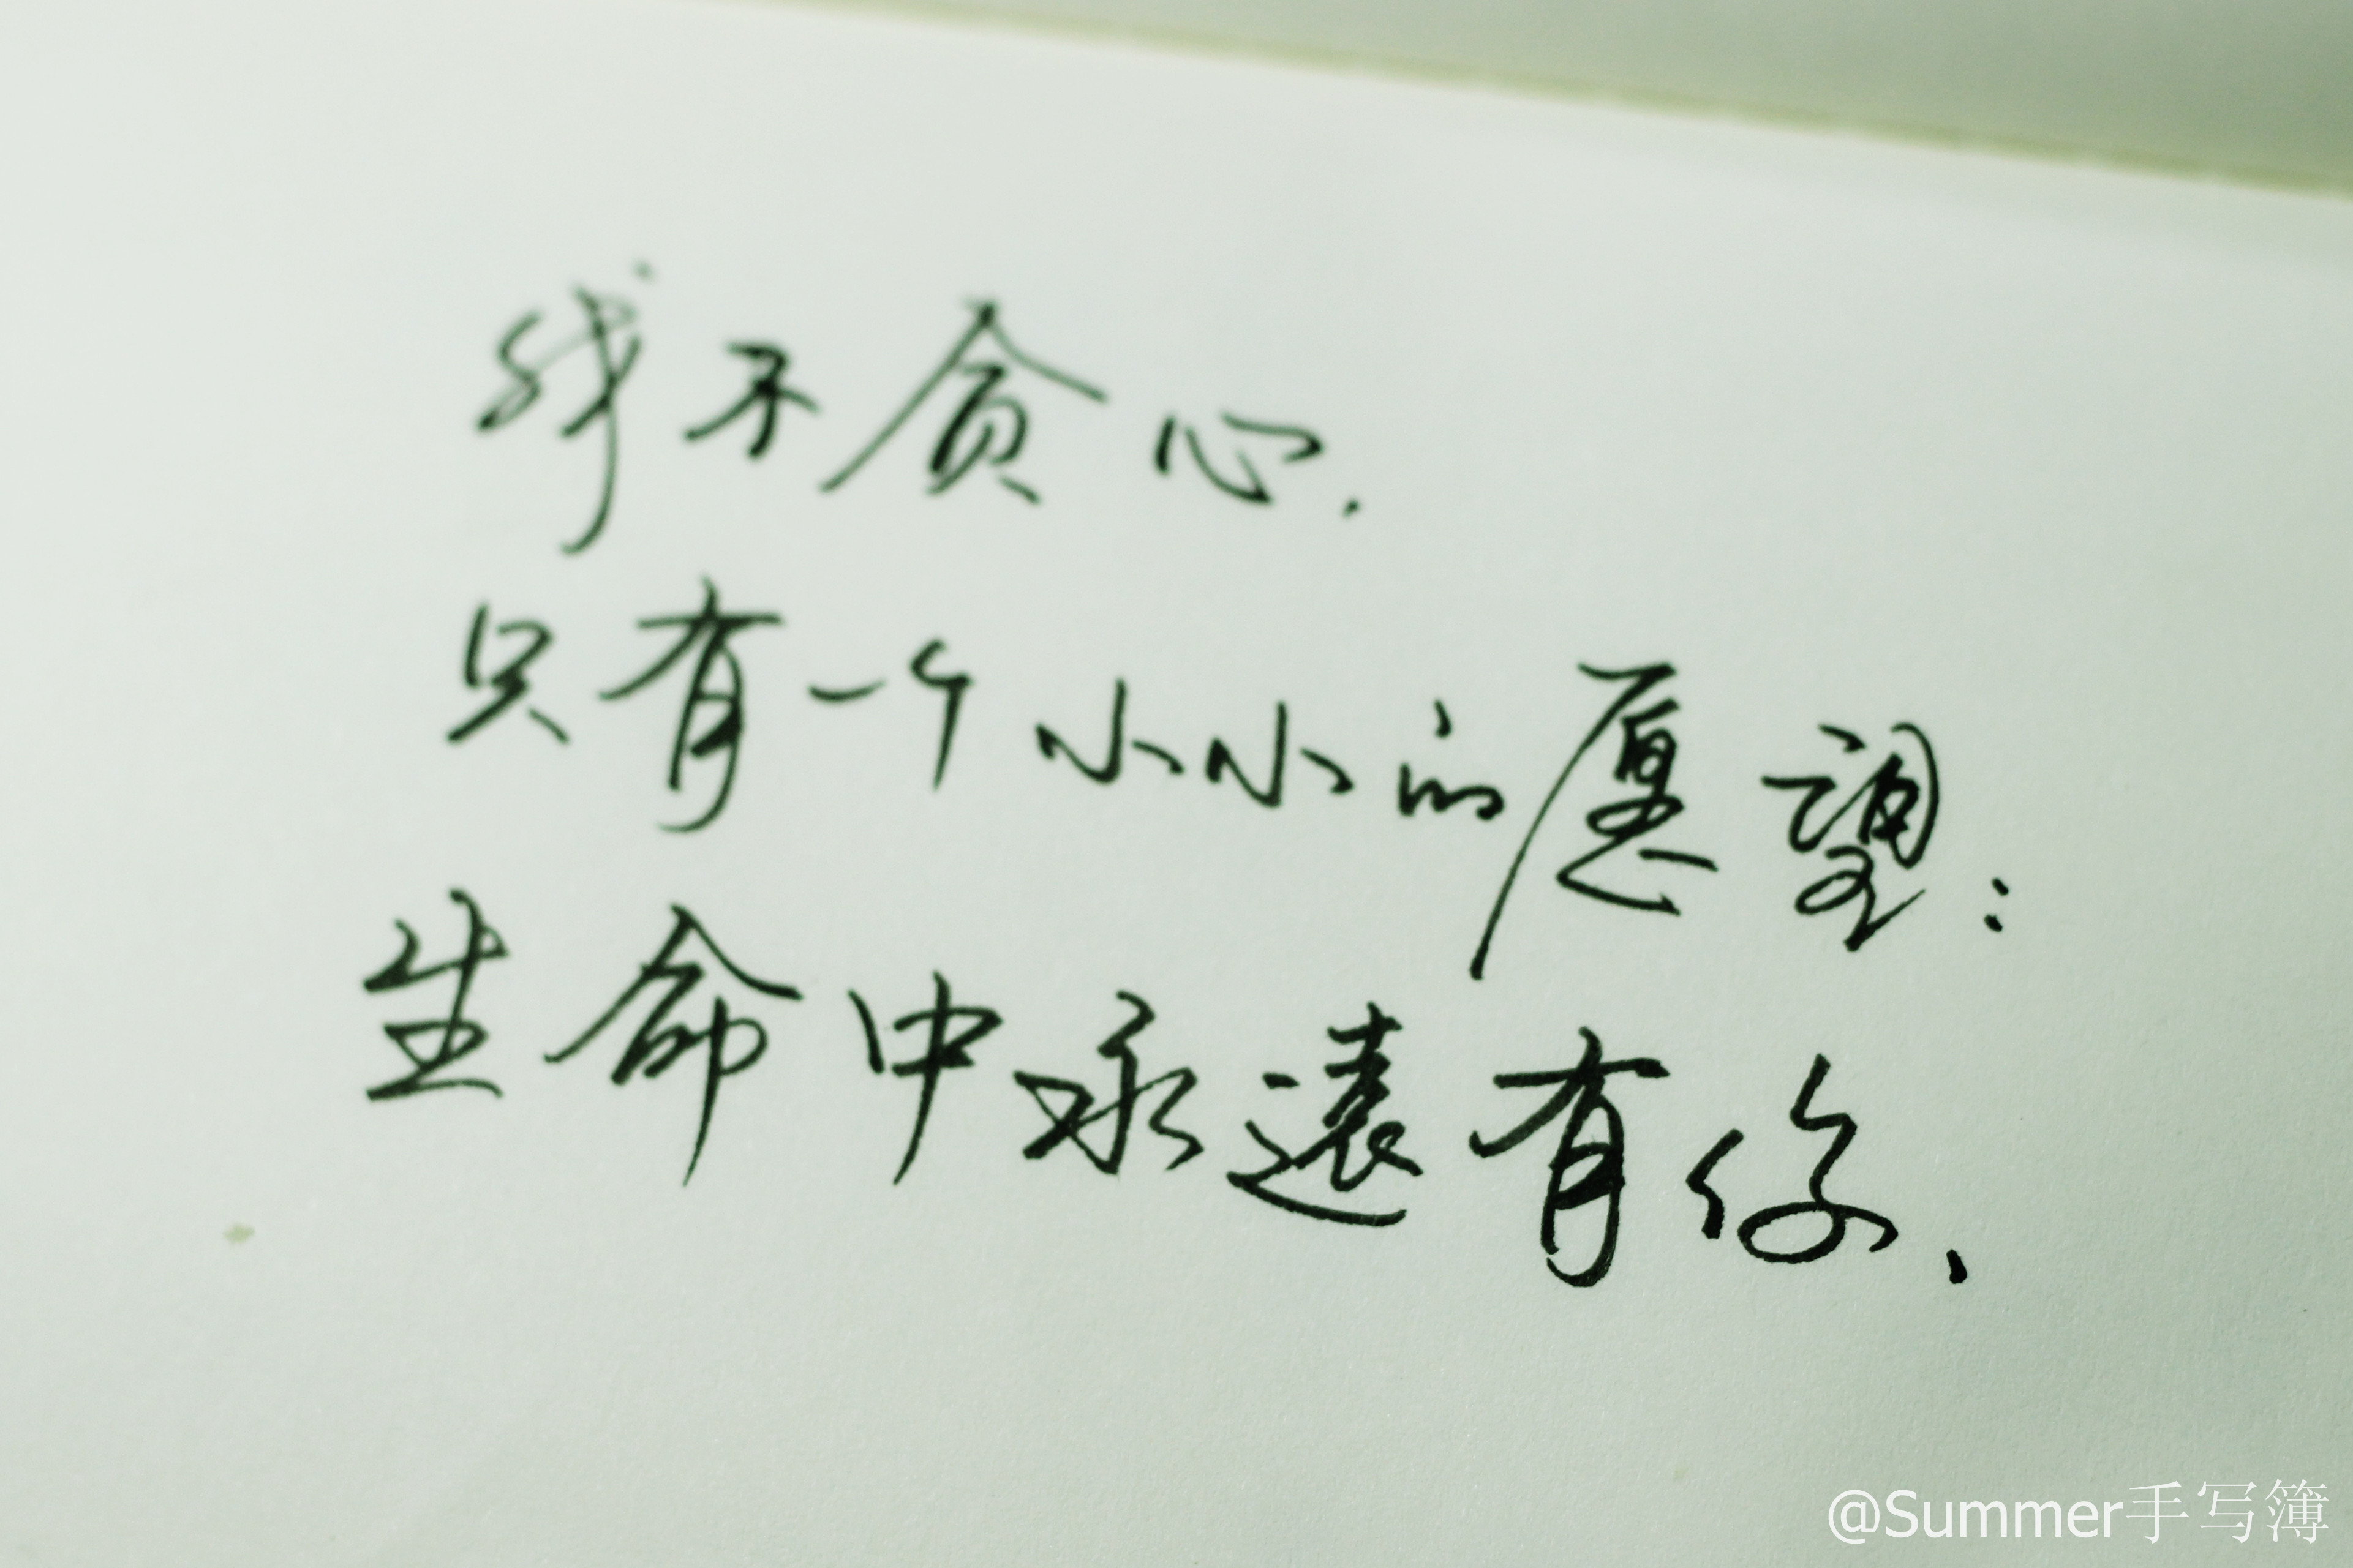 我不贪心.
只有一个小小的愿望:
生命中永遠有你、
@Summer手写簿